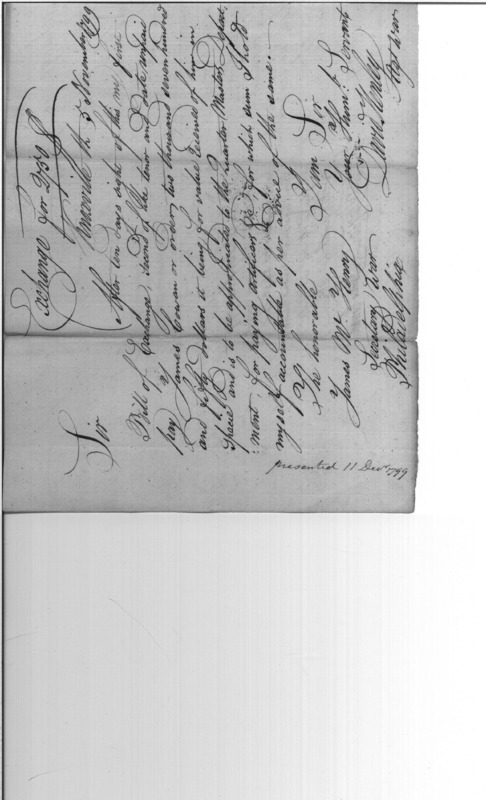 Exchange for 2750 $
Knoxville th 5 November 1799
Sir
After ten days sight of this my first
Bill of Exchange, second of the tenor and date unpaid
pay James Cowan or order, two thousand seven hundred
and fifty dollars it being for value received of him in
specie and is to be appropriated to the Quarter Masters Depart-
:ment, for paying artificers &c for which sum I hold
myself accountable as per advice of the same.—
I am Sir
The honorable
Your Hum.e Servant
James Mc Henry
David Henley
Secretary War
Agt War
Philadelphia
presented 11 Decr 1799